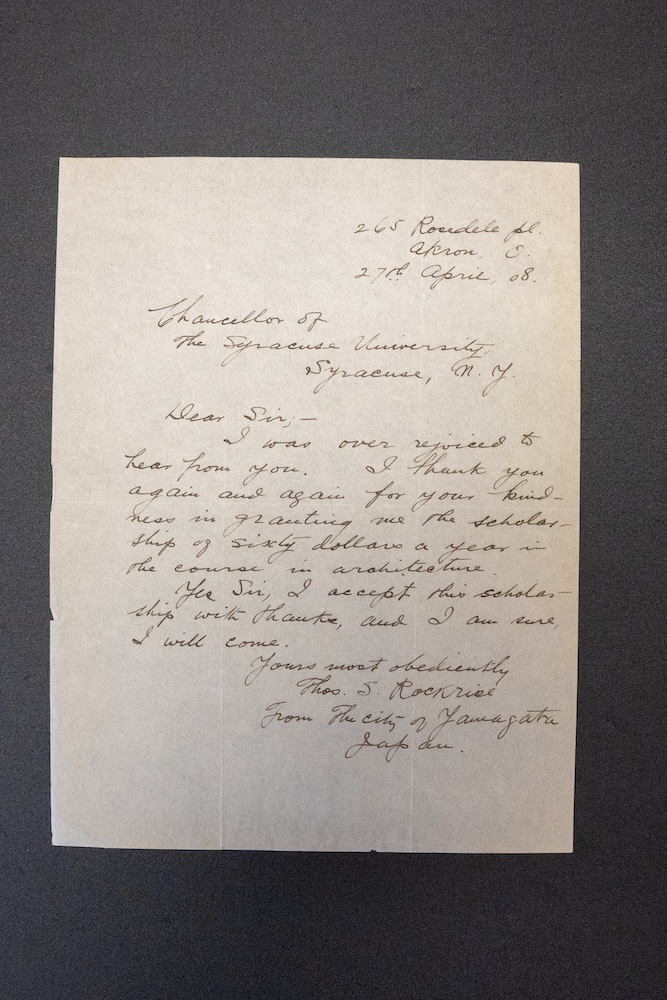 265 Rosedele pl.
Akron, O.
27th April, 08.
Chancellor of
The Syracuse University,
Syracuse, N. Y.
Dear Sir;—
I was over rejoiced to
hear from you. I thank you
again and again for your kind-
ness in granting me the scholar-
ship of sixty dollars a year in
the course in architecture.
Yes Sir, I accept this scholar-
ship with thanks, and I am sure,
I will come.
Yours most obediently
Thos. S. Rockrise
From The city of Yamagata
Japan.